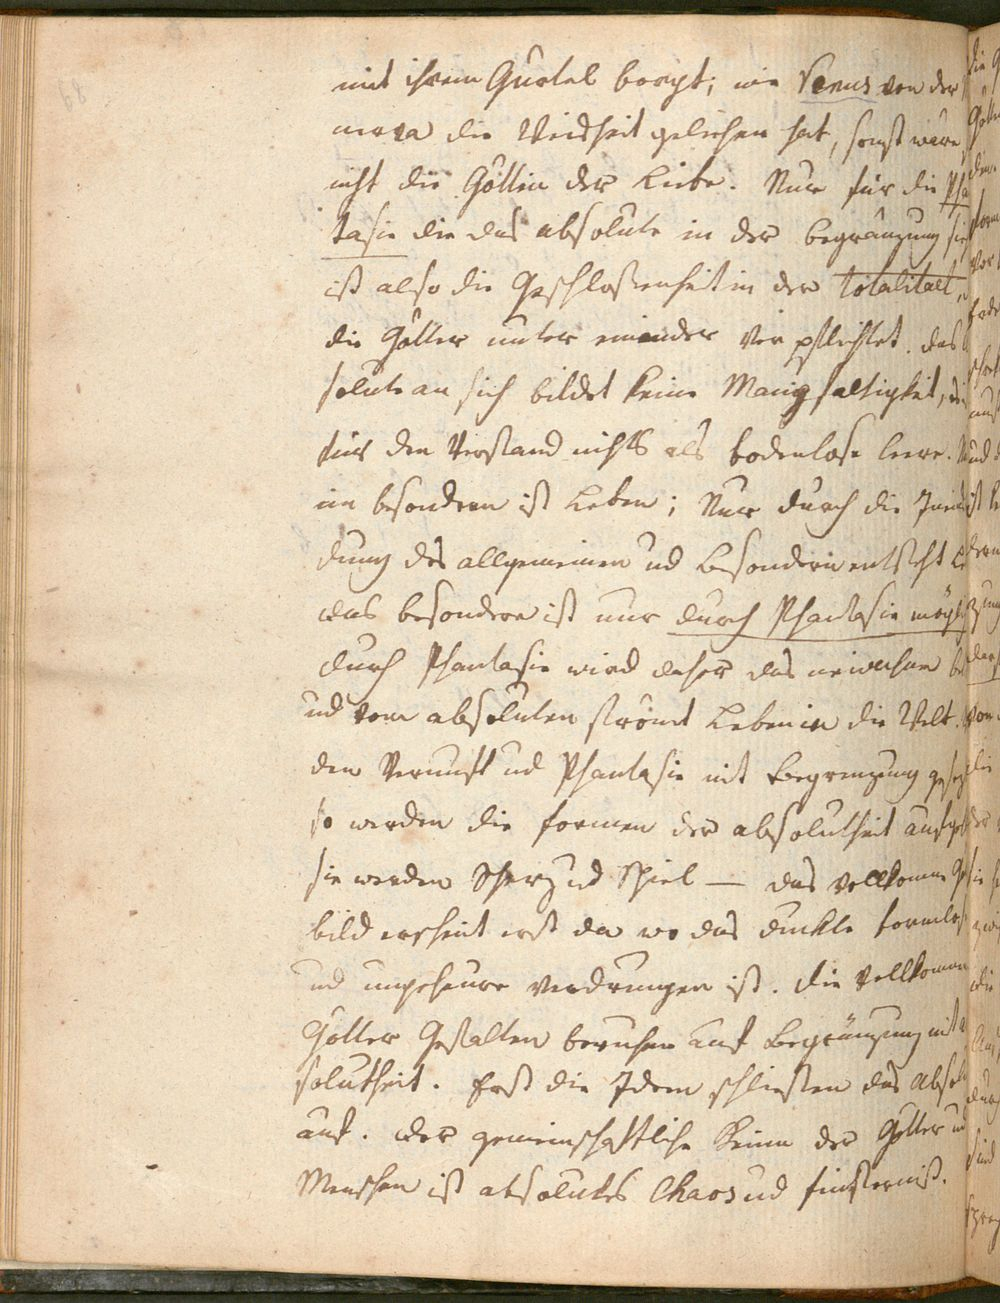 mit ihrem Gürtel borgt; wie Venus von der
nerva die Weisheit geliehen hat, sonst wäre
nicht die Göttin der Liebe. Nur für die Pha
tasie die das absolute in der begränzung sie
ist also die Geschlossenheit in der totalitaet,
die Götter unter einander verpflichtet. das
solute an sich bildet keine Manigfaltigkeit,
für den Verstand nichts als bodenlose leere.
im besondern ist Leben; Nur durch die
dung des allgemeinen ud besondern entsteht
das besondere ist nur durch Phantasie mögli
durch Phantasie wird daher das
ud vom absoluten strömt Leben in die Welt.
den Vernunft ud Phantasie mit Begrenzung gesez
so werden die formen der absolutheit aufgeh
sie werden Scherz ud Spiel — das vollkomne
bild erscheint erst da wo das dunkle formlos
ud ungeheure verdrungen ist. die vollkomen
Götter Gestalten beruhen auf Begränzung mit
solutheit. Erst die Ideen schliessen das Absol
auf. der gemeinschaftliche Keim der Götter ud
Menschen ist absolutes Chaos ud finsterniß.